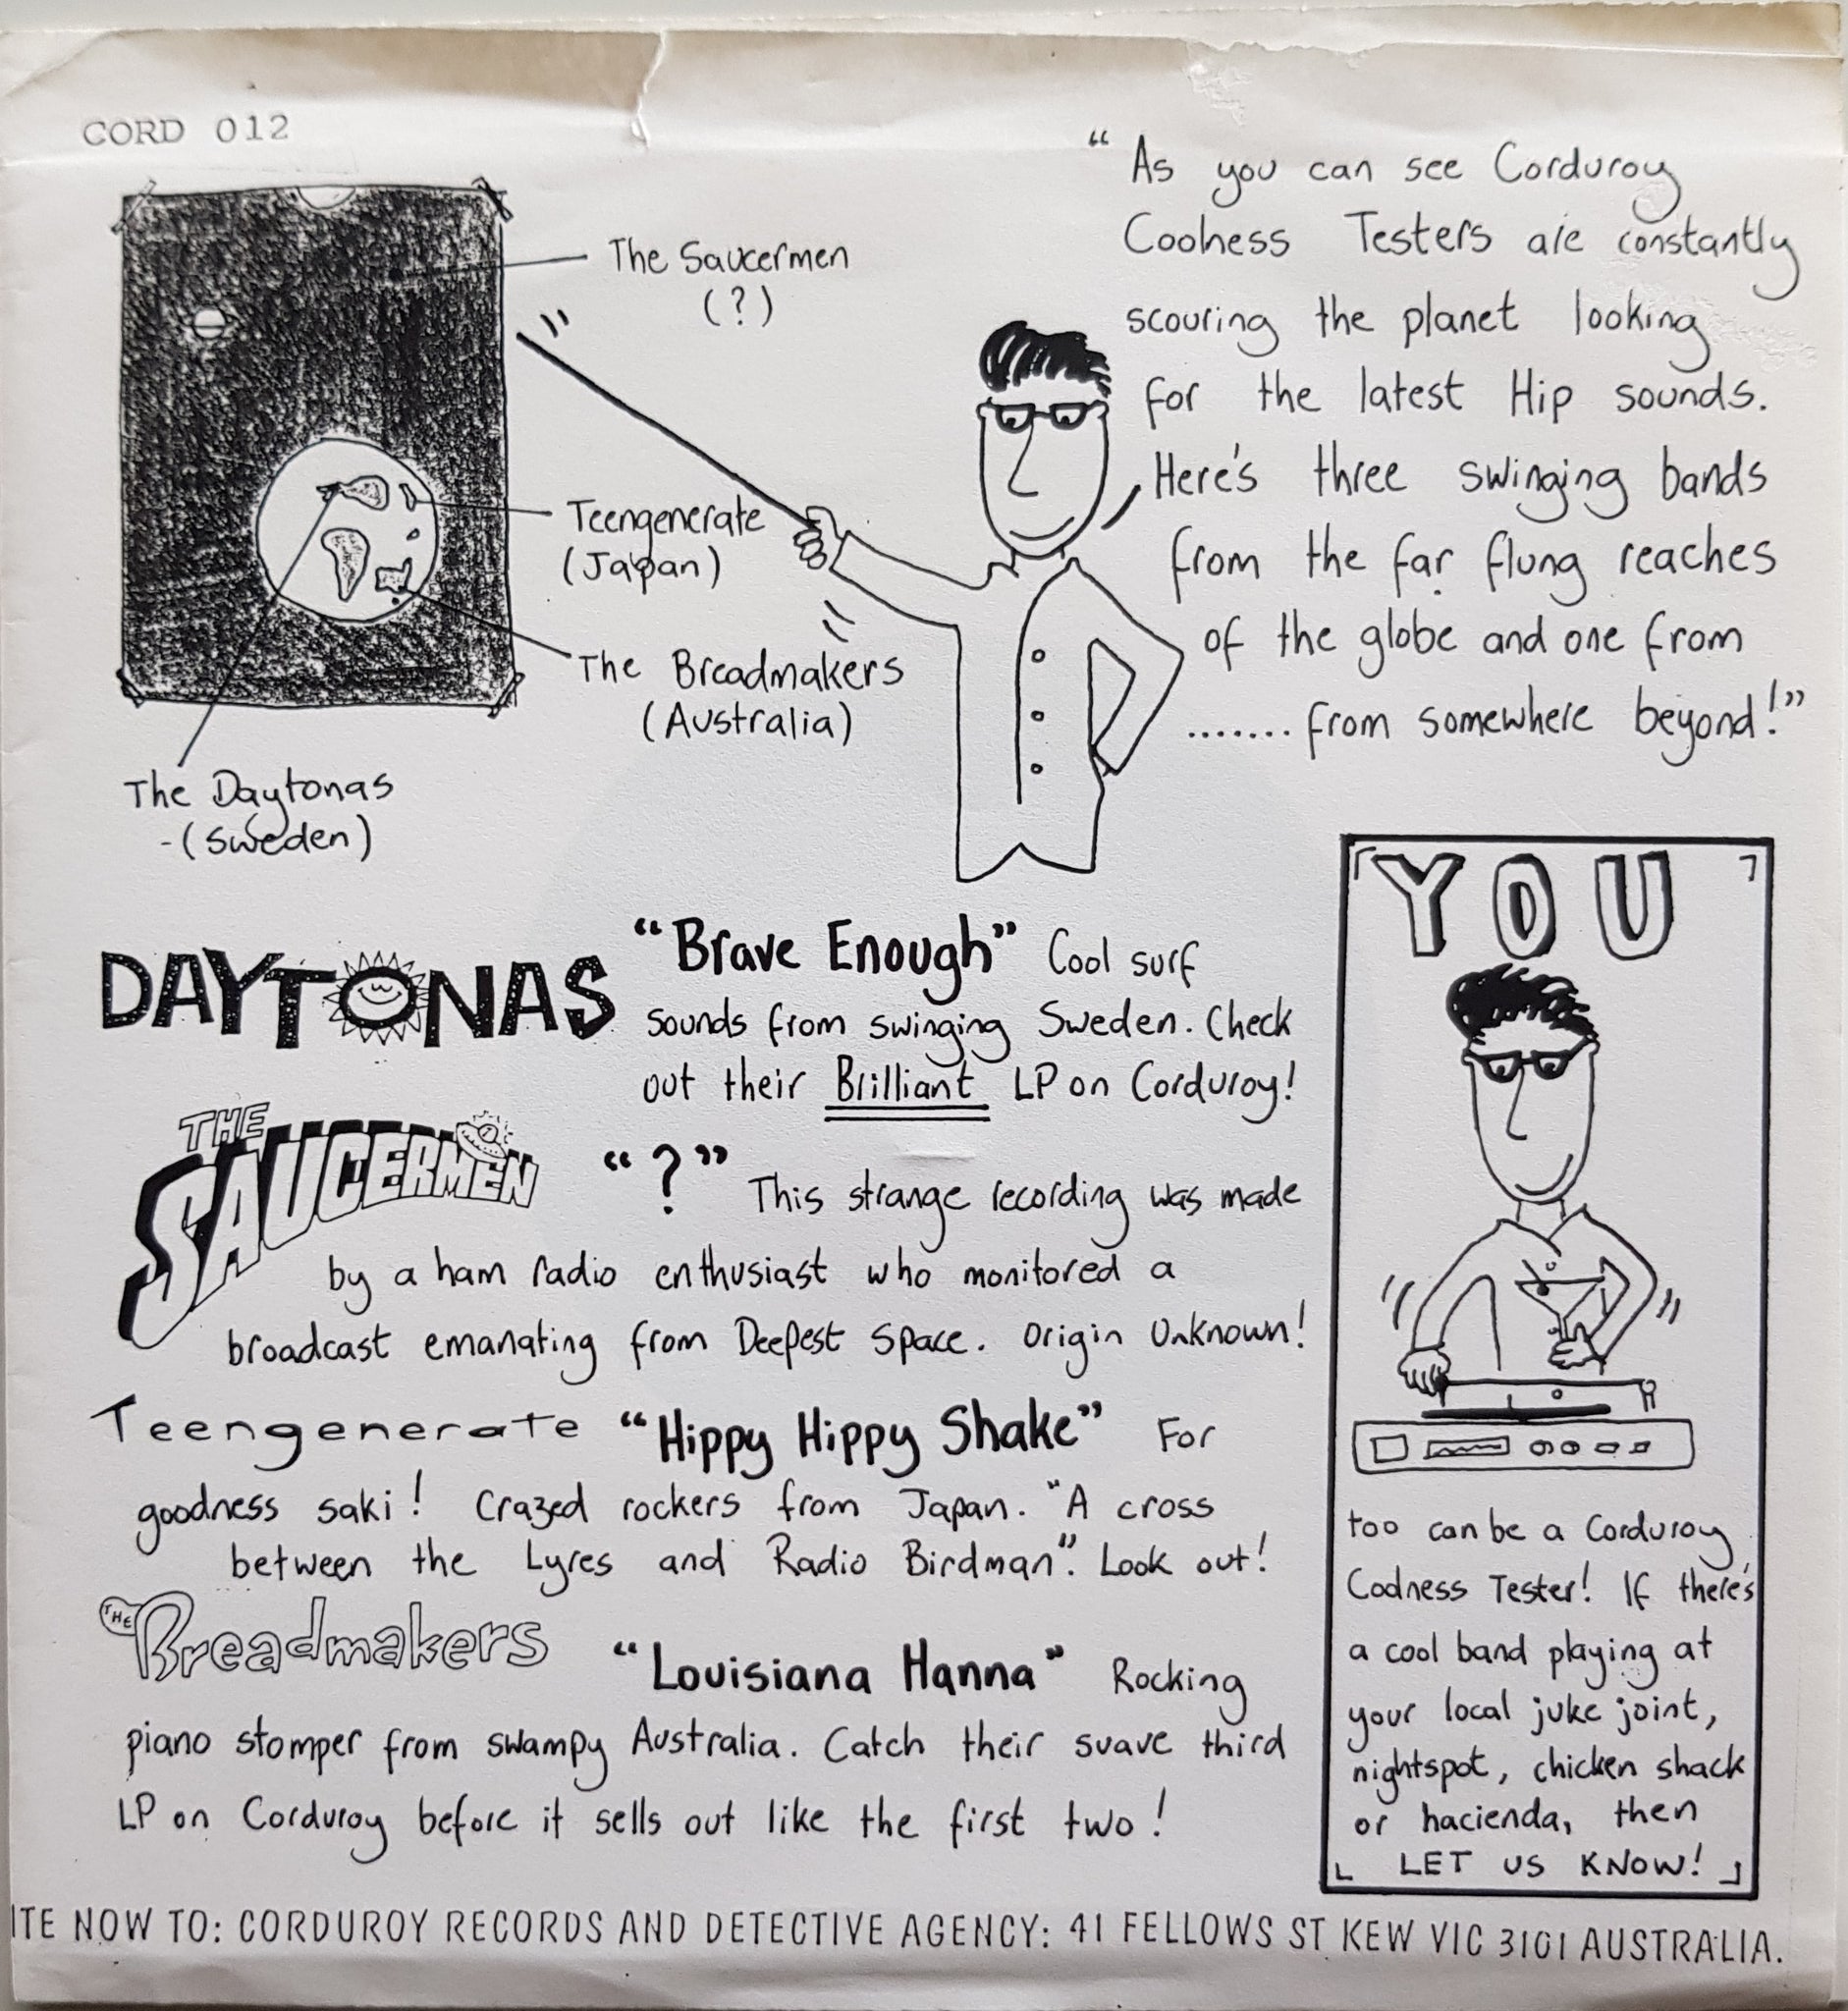 CORD 012
The Saucermen
(?)
Teengenerate
(Japan)
The Breadmakers
(Australia)
The Daytonas
-(Sweden)
“As you can see Corduroy
Coolness Testers are constantly
scouring the planet looking
for the latest Hip sounds.
Here's three swinging bands
from the far flung reaches
of the globe and one from
.......from somewhere beyond!”
DAYTONAS “Brave Enough” Cool surf
sounds from swinging Sweden. Check
out their Brilliant LP on Corduroy!
THE SAUCERMEN “?” This strange recording was made
by a ham radio enthusiast who monitored a
broadcast emanating from Deepest Space. Origin Unknown!
Teengenerate “Hippy Hippy Shake” For
goodness saki! Crazed rockers from Japan. “A cross
between the Lyres and Radio Birdman”. Look out!
THE Breadmakers “Louisiana Hanna” Rocking
piano stomper from swampy Australia. Catch their suave third
LP on Corduroy before it sells out like the first two!
YOU
too can be a Corduroy
Coolness Tester! If there's
a cool band playing at
your local juke joint,
nightspot, chicken shack
or hacienda, then
LET US KNOW!
ITE NOW TO: CORDUROY RECORDS AND DETECTIVE AGENCY: 41 FELLOWS ST KEW VIC 3101 AUSTRALIA.